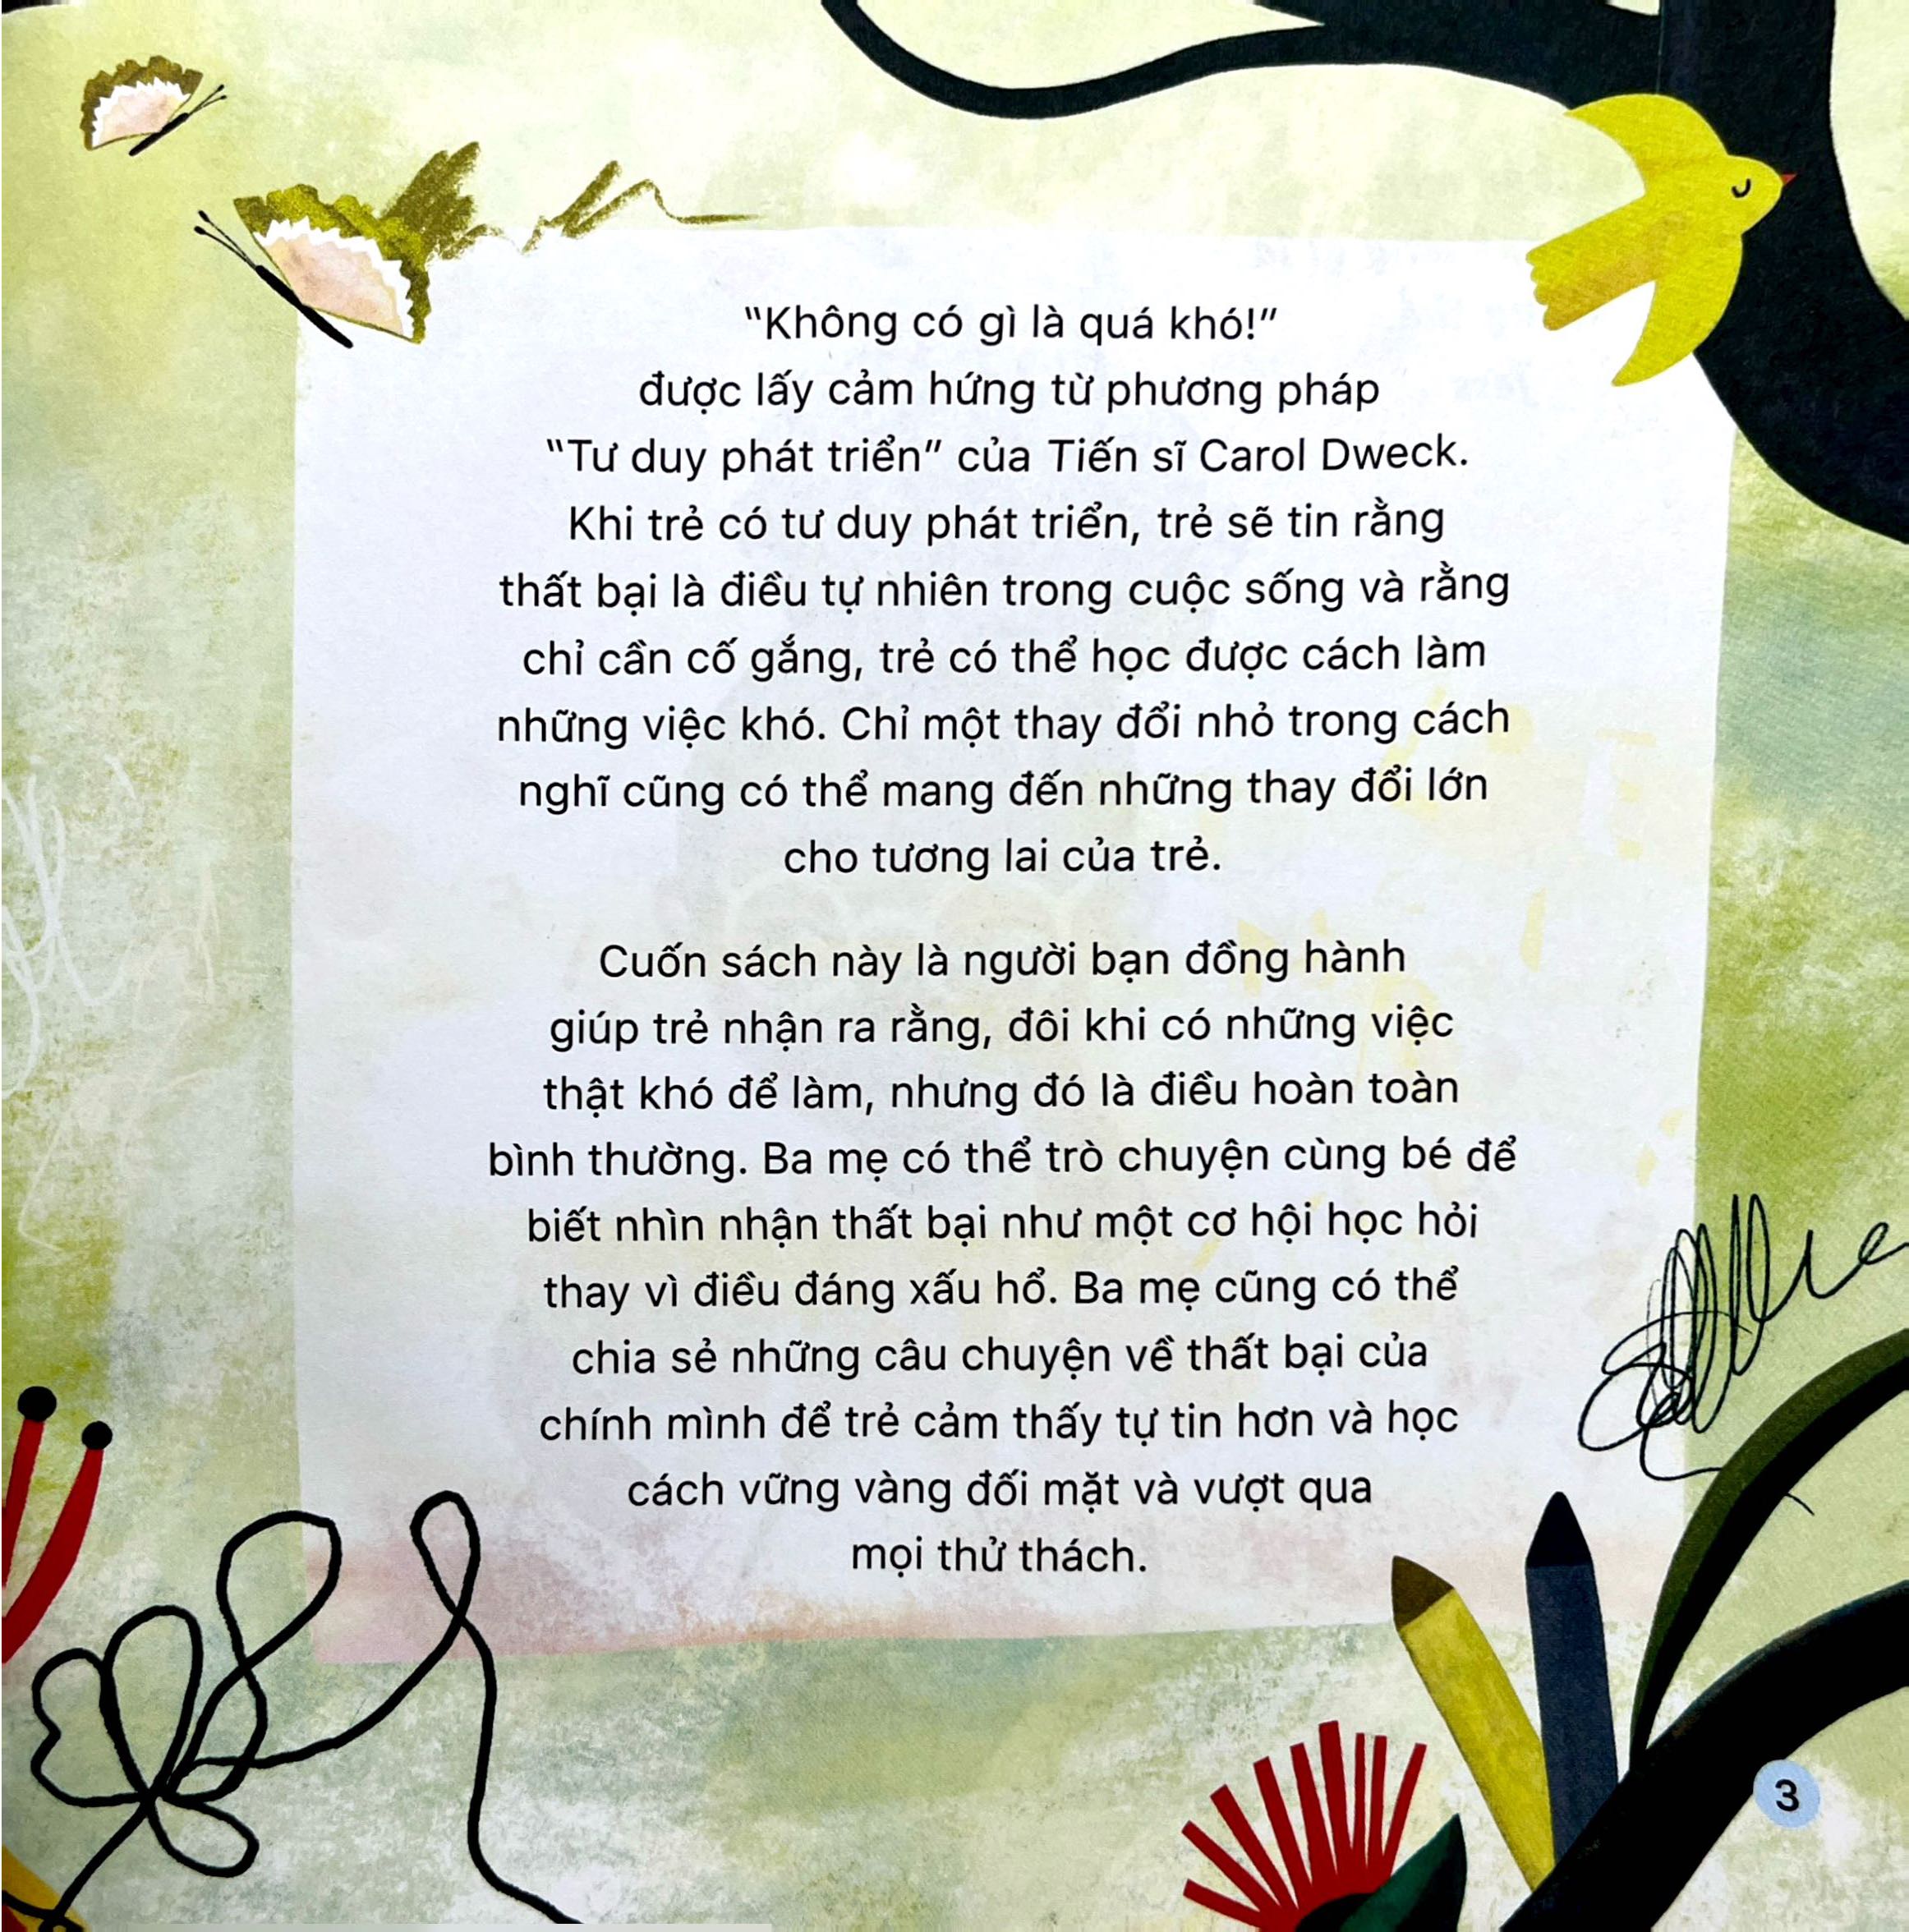 “Không có gì là quá khó!”
được lấy cảm hứng từ phương pháp
“Tư duy phát triển” của Tiến sĩ Carol Dweck.
Khi trẻ có tư duy phát triển, trẻ sẽ tin rằng
thất bại là điều tự nhiên trong cuộc sống và rằng
chỉ cần cố gắng, trẻ có thể học được cách làm
những việc khó. Chỉ một thay đổi nhỏ trong cách
nghĩ cũng có thể mang đến những thay đổi lớn
cho tương lai của trẻ.
Cuốn sách này là người bạn đồng hành
giúp trẻ nhận ra rằng, đôi khi có những việc
thật khó để làm, nhưng đó là điều hoàn toàn
bình thường. Ba mẹ có thể trò chuyện cùng bé để
biết nhìn nhận thất bại như một cơ hội học hỏi
thay vì điều đáng xấu hổ. Ba mẹ cũng có thể
chia sẻ những câu chuyện về thất bại của
chính mình để trẻ cảm thấy tự tin hơn và học
cách vững vàng đối mặt và vượt qua
mọi thử thách.
3